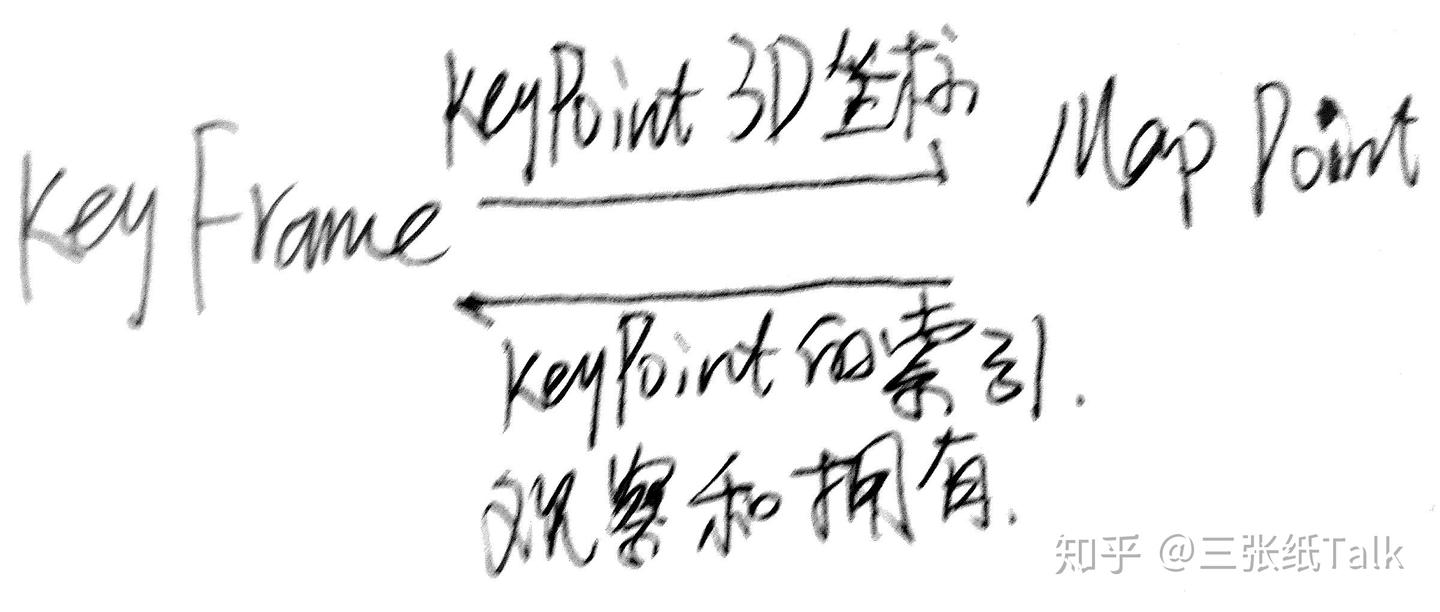 KeyPoint 3D坐标
KeyFrame
Map Point
KeyPoint的索引.
观察和拥有.
知乎 @三张纸Talk